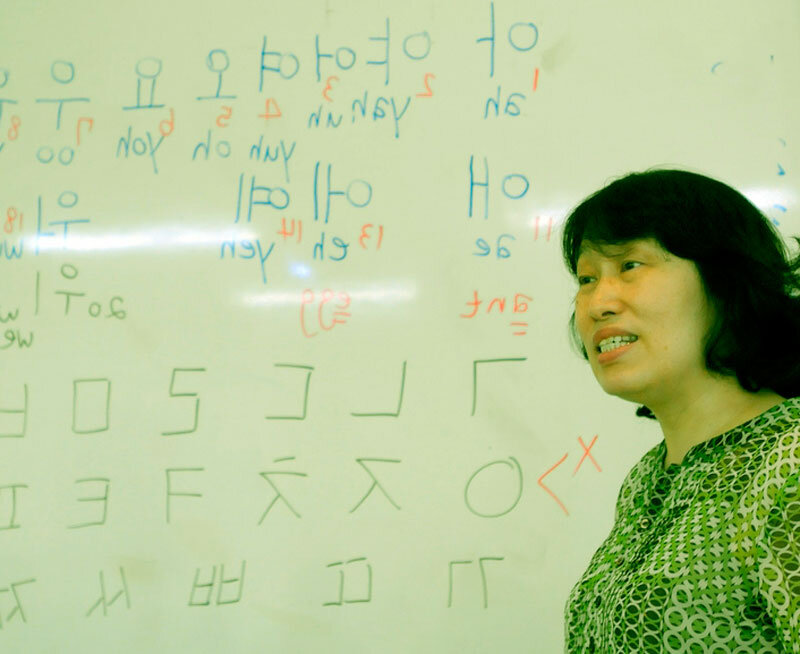 아 야 어 여 오 요 우
1 2 3 4 5 6 7 8
ah yah uh yuh oh yoh oo
애 에 예 워
11 13 14 18
ae eh yeh
ant egg 위
ㄱ ㄴ ㄷ ㄹ ㅁ ㅂ
x ㅇ ㅈ ㅊ ㅋ ㅌ ㅍ
ㄲ ㄸ ㅃ ㅆ ㅉ